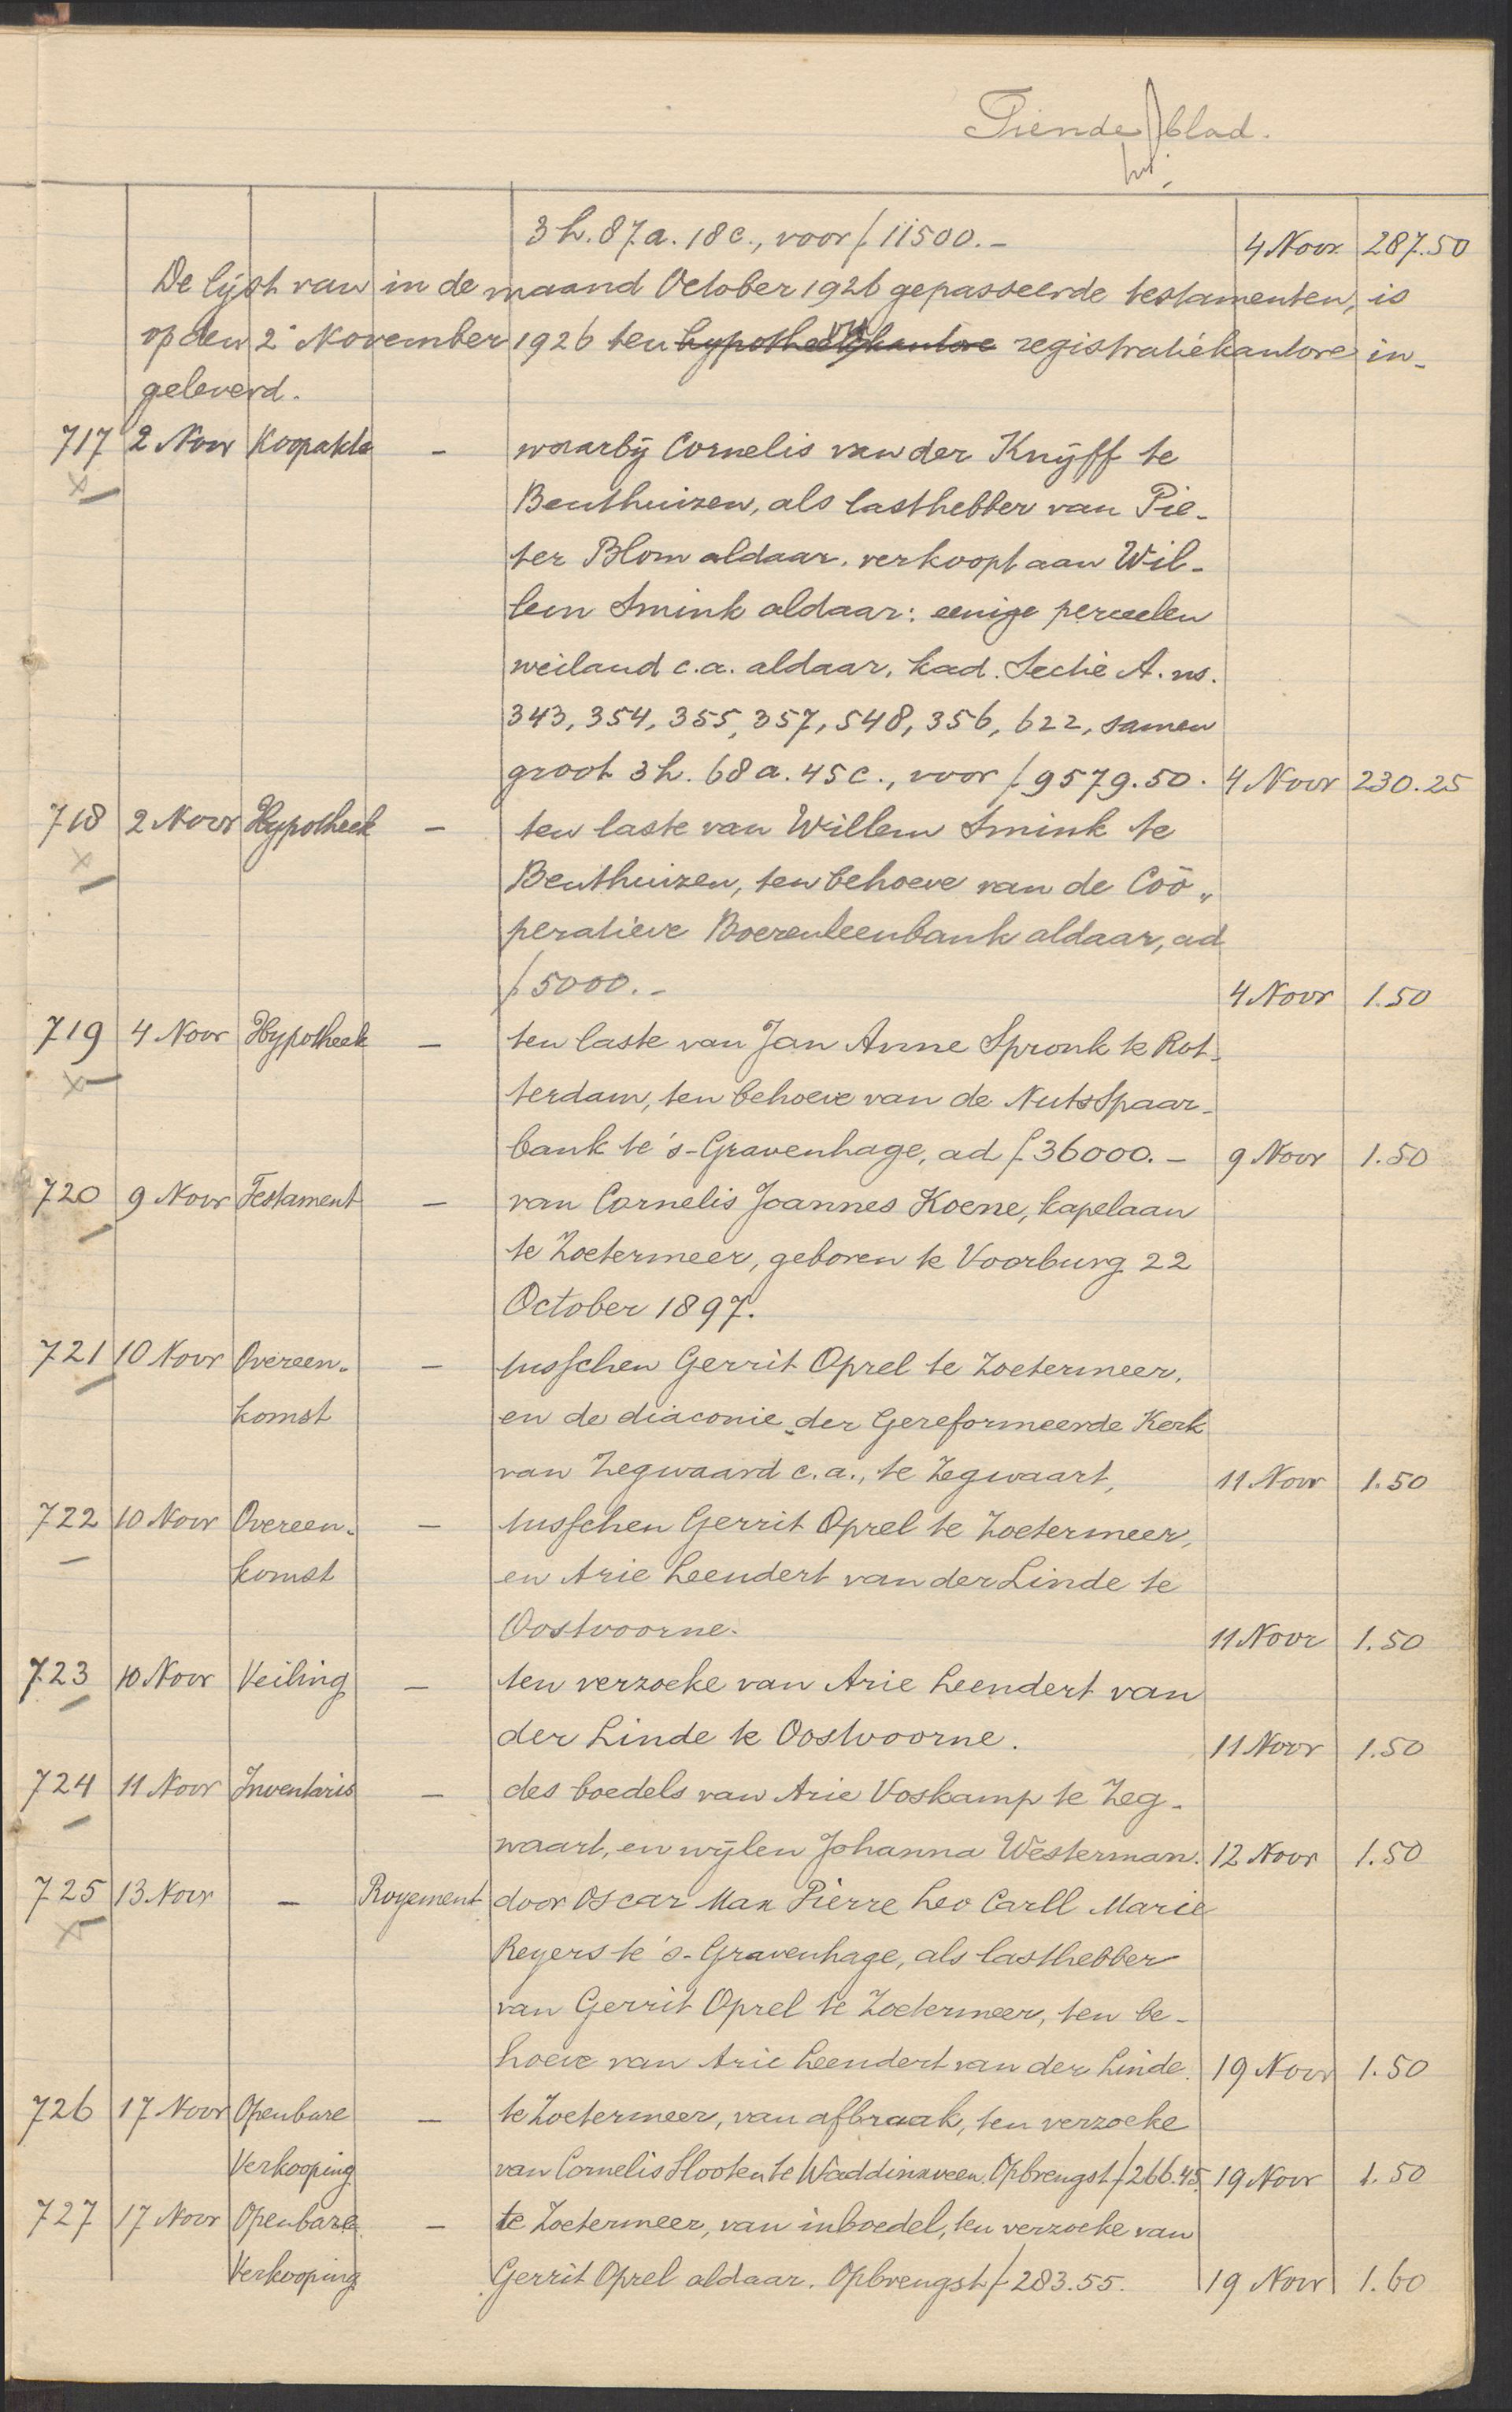 Tiende blad.
3 h. 87 a. 18 c., voor f 11500.- 4 Novr 287.50
De lijst van in de maand October 1926 gepasseerde testamenten, is
op den 2n November 1926 ten hypotheekkantore registratiekantore in-
geleverd.
717 2 Novr Koopakte - waarbij Cornelis van der Knijff te
Benthuizen, als lasthebber van Pie-
ter Blom aldaar, verkoopt aan Wil-
lem Smink aldaar: eenige perceelen
weiland c.a. aldaar, kad. Sectie A. ns.
343, 354, 355, 357, 548, 356, 622, samen
groot 3 h. 68 a. 45 c., voor f 9579.50. 4 Novr 230.25
718 2 Novr Hypotheek - ten laste van Willem Smink te
Benthuizen, ten behoeve van de Coö„
peratieve Boerenleenbank aldaar, ad
f 5000.- 4 Novr 1.50
719 4 Novr Hypotheek - ten laste van Jan Anne Spronk te Rot-
terdam, ten behoeve van de NutsSpaar-
bank te 's-Gravenhage, ad f 36000.- 9 Novr 1.50
720 9 Novr Testament - van Cornelis Joannes Koene, kapelaan
te Zoetermeer, geboren te Voorburg 22
October 1897.
721 10 Novr Overeen- - tusschen Gerrit Oprel te Zoetermeer,
komst en de diaconie der Gereformeerde Kerk
van Zegwaard c.a., te Zegwaart, 11 Novr 1.50
722 10 Novr Overeen- - tusschen Gerrit Oprel te Zoetermeer,
komst en Arie Leendert van der Linde te
Oostvoorne. 11 Novr 1.50
723 10 Novr Veiling - ten verzoeke van Arie Leendert van
der Linde te Oostvoorne. 11 Novr 1.50
724 11 Novr Inventaris - des boedels van Arie Voskamp te Zeg-
waart, en wijlen Johanna Westerman. 12 Novr 1.50
725 13 Novr - Royement door Oscar Max Pierre Leo Carll Marie
Reyers te 's-Gravenhage, als lasthebber
van Gerrit Oprel te Zoetermeer, ten be-
hoeve van Arie Leendert van der Linde. 19 Novr 1.50
726 17 Novr Openbare - te Zoetermeer, van afbraak, ten verzoeke
Verkooping van Cornelis Slooten te Waddinxveen. Opbrengst f 266.45 19 Novr 1.50
727 17 Novr Openbare - te Zoetermeer, van inboedel, ten verzoeke van
Verkooping Gerrit Oprel aldaar. Opbrengst f 283.55. 19 Novr 1.60